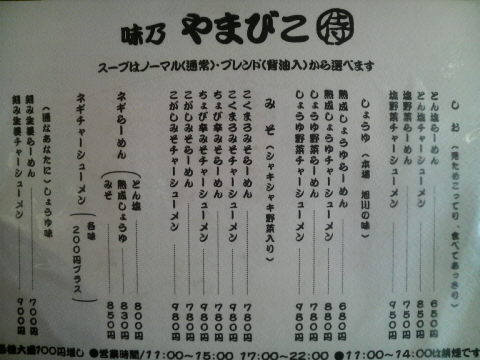 味乃 やまびこ 侍
スープはノーマル(通常)・ブレンド(背油入)から選べます
しお(見ためこってり、食べてあっさり)
とん塩らーめん 650円
とん塩チャーシューメン 850円
塩野菜らーめん 750円
塩野菜チャーシューメン 950円
しょうゆ(本場 旭川の味)
熟成しょうゆらーめん 680円
熟成しょうゆチャーシューメン 880円
しょうゆ野菜らーめん 780円
しょうゆ野菜チャーシューメン 980円
みそ(シャキシャキ野菜入り)
こくまろみそらーめん 780円
こくまろみそチャーシューメン 980円
ちょび辛みそらーめん 780円
ちょび辛みそチャーシューメン 980円
こがしみそらーめん 780円
こがしみそチャーシューメン 980円
ネギらーめん
とん塩 800円
熟成しょうゆ 830円
みそ 850円
ネギチャーシューメン
各味
200円プラス
(通なあなたに)しょうゆ味
刻み生姜らーめん 700円
刻み生姜チャーシューメン 900円
各種大盛100円増し ●営業時間/11:00〜15:00 17:00〜22:00 ●11:00〜14:00は禁煙です